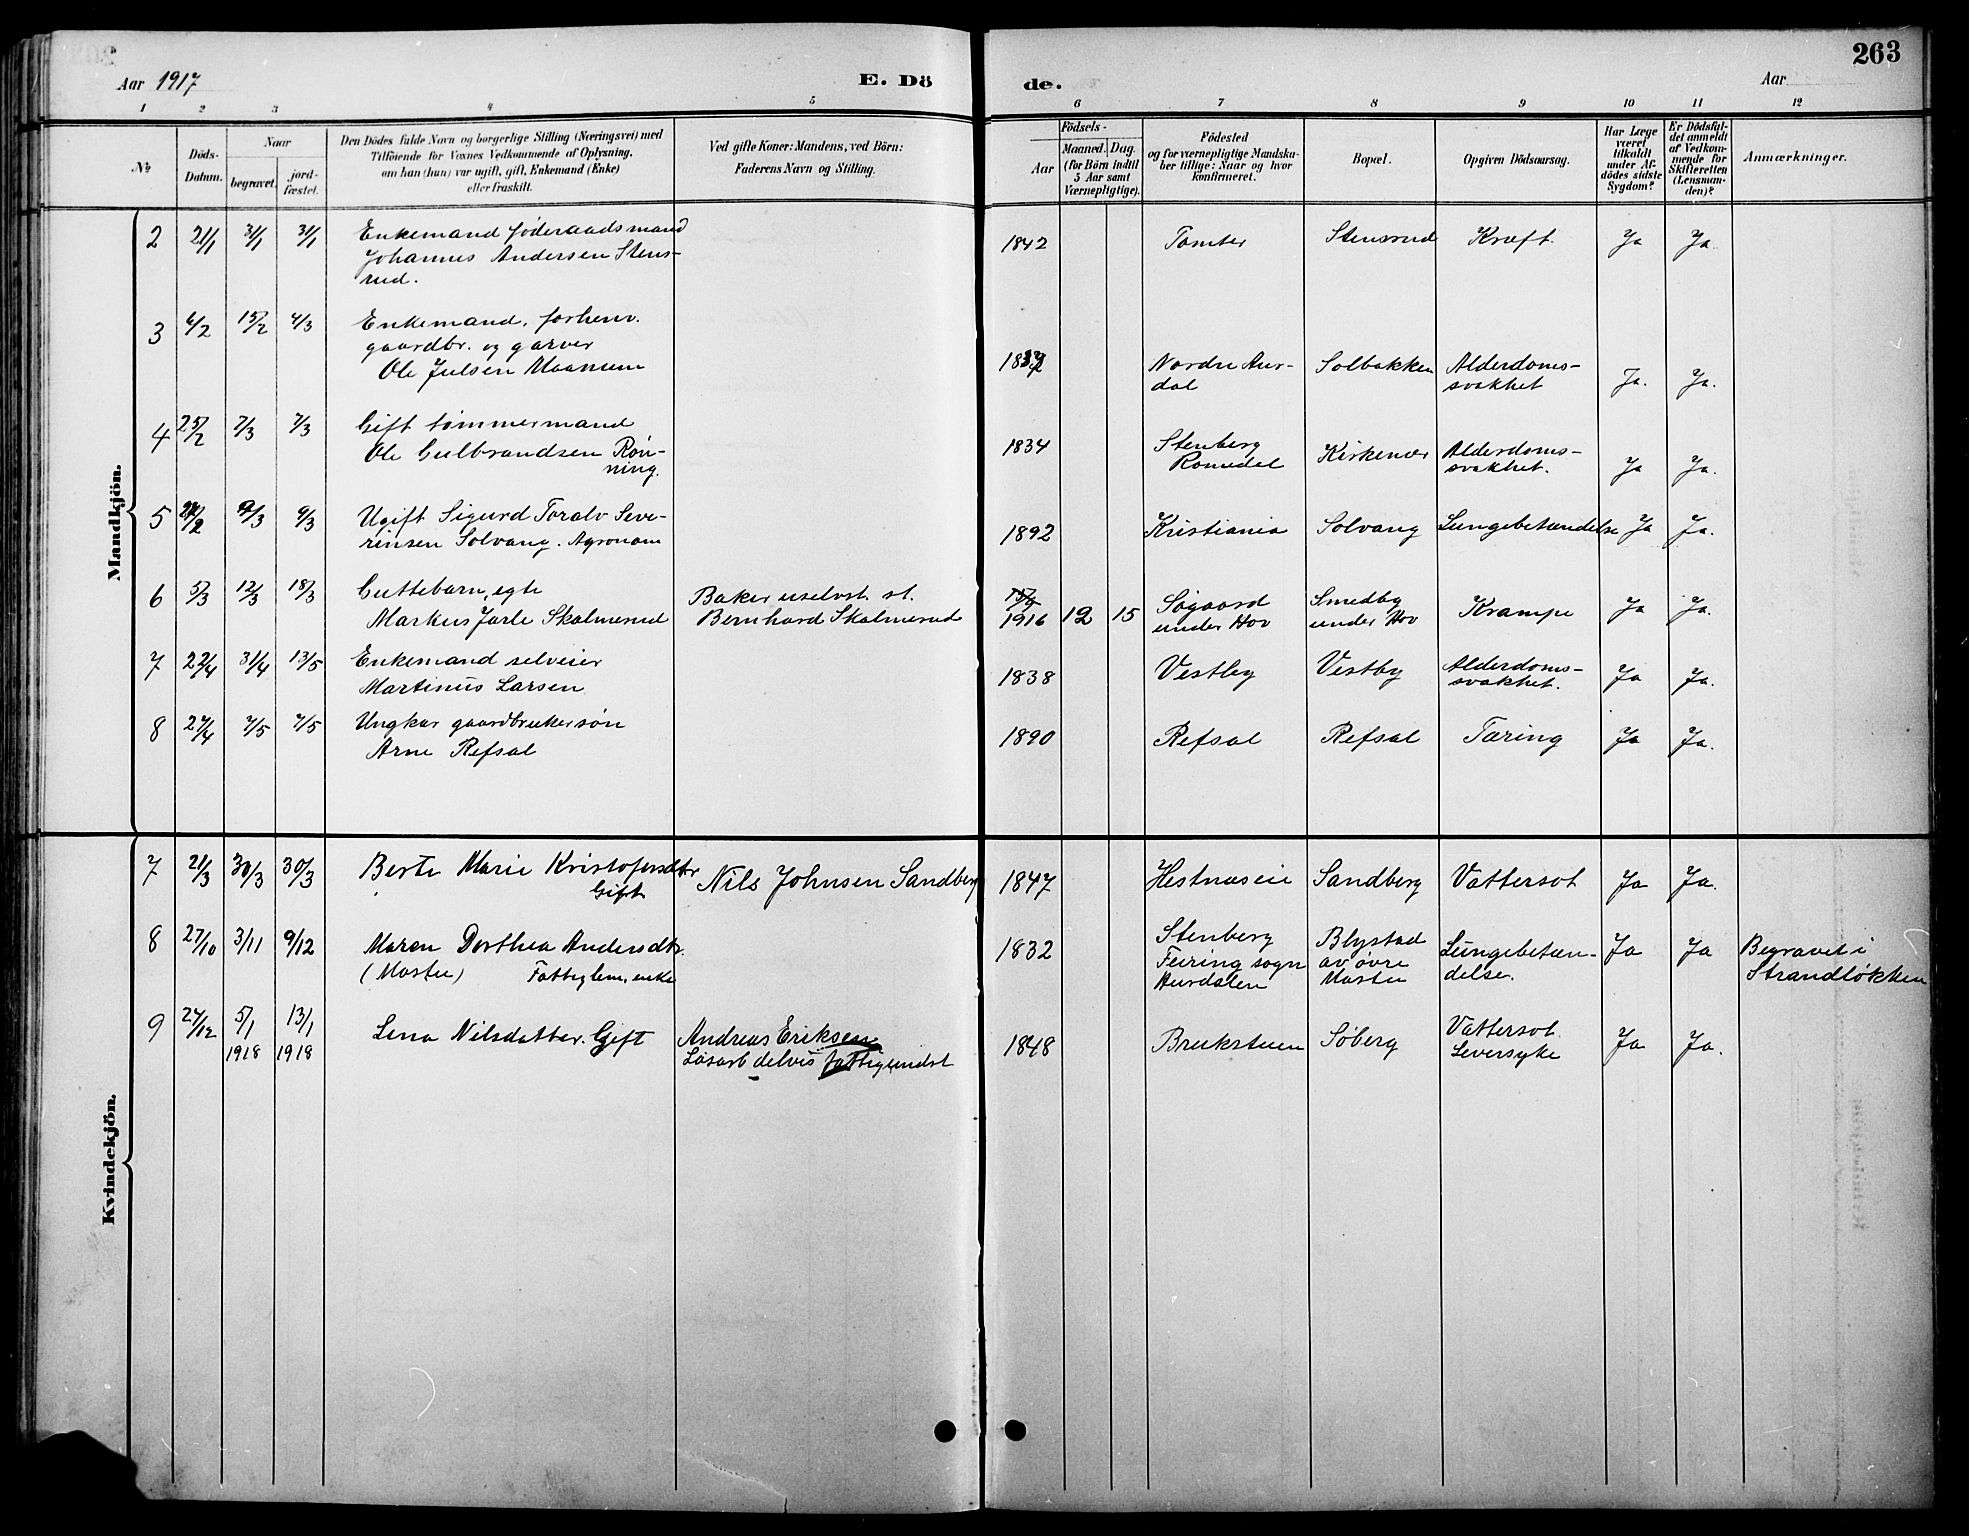 263
Aar 1917
E. Dö
de.
Aar
1 2 3 4 5 6 7 8 9 10 11 12
№
Döds-
Datum.
Naar
begravet.
jord-
fæstet.
Den Dödes fulde Navn og borgerlige Stilling (Næringsvei) med
Tilföiende for Voxnes Vedkommende af Oplysning,
om han (hun) var ugift, gift, Enkemand (Enke)
eller fraskilt.
Ved gifte Koner: Mandens, ved Börn:
Faderens Navn og Stilling.
Födsels-
Aar
Maaned.
Dag.
(for Börn indtil
5 Aar samt
Værnepligtige).
Födested
og for værnepligtige Mandska-
ber tillige: Naar og hvor
konfirmeret.
Bopæl.
Opgiven Dödsaarsag.
Har Læge
været
tilkaldt
under Af-
dödes sidste
Sygdom?
Er Dödsfal-
det anmeldt
af Vedkom-
mende for
Skifteretten
(Lensman-
den)?
Anmærkninger.
Mandkjön.
2 21/1 31/1 31/1 Enkemand føderaadsmand 1842 Tomter Stensrud Kræft. Ja Ja
Johannes Andersen Stens-
rud.
3 6/2 15/2 4/3 Enkemand, forhenv.
gaardbr. og garver
Ole Julsen Maanum Nordre Aur- Solbakken Alderdoms- Ja. Ja.
dal svakhet
4 25/2 7/3 7/3 Gift tømmermand 1834 Stenberg Kirkenær Alderdoms- Ja Ja.
Ole Gulbrandsen Røn- Romedal svakhet.
ning.
5 9/3 9/3 Ugift Sigurd Toralv Seve- 1892 Kristiania Solvang Lungebetændelse Ja Ja.
rinsen Solvang. Agronom
6 5/3 12/3 18/3 Guttebarn, egte Baker uselvst. st. 1916 12 15 Søgaard Smedby Krampe Ja Ja.
Markus Jarle Skalmerud Bernhard Skalmerud under Hov under Hov
7 22/4 31/4 13/5 Enkemand selveier 1838 Vestby Vestby Alderdoms- Ja Ja.
Martinus Larsen svakhet.
8 27/4 7/5 7/5 Ungkar gaardbrukersøn 1890 Refsal Refsal Tæring Ja Ja.
Arne Refsal
Kvindekjön.
7 21/3 30/3 30/3 Berte Marie Kristofersdtr Nils Johnsen Sandberg 1847 Hestnæseie Sandberg Vattersot Ja Ja.
Gift
8 27/10 3/11 9/12 Maren Dorthea Andersdtr. 1832 Stenberg Blystad Lungebetæn- Ja Ja Begravet i
(Mastu) Fattiglem, enke Feiring sogn av øvre delse. Strandløkken
Hurdalen Mastu
9 27/12 5/1 13/1 Lena Nilsdatter. Gift Andreas Eriksen 1848 Brukstuen Søberg Vattersot Ja Ja.
1918 1918 Løsarb delvis fattigundst Leversyke